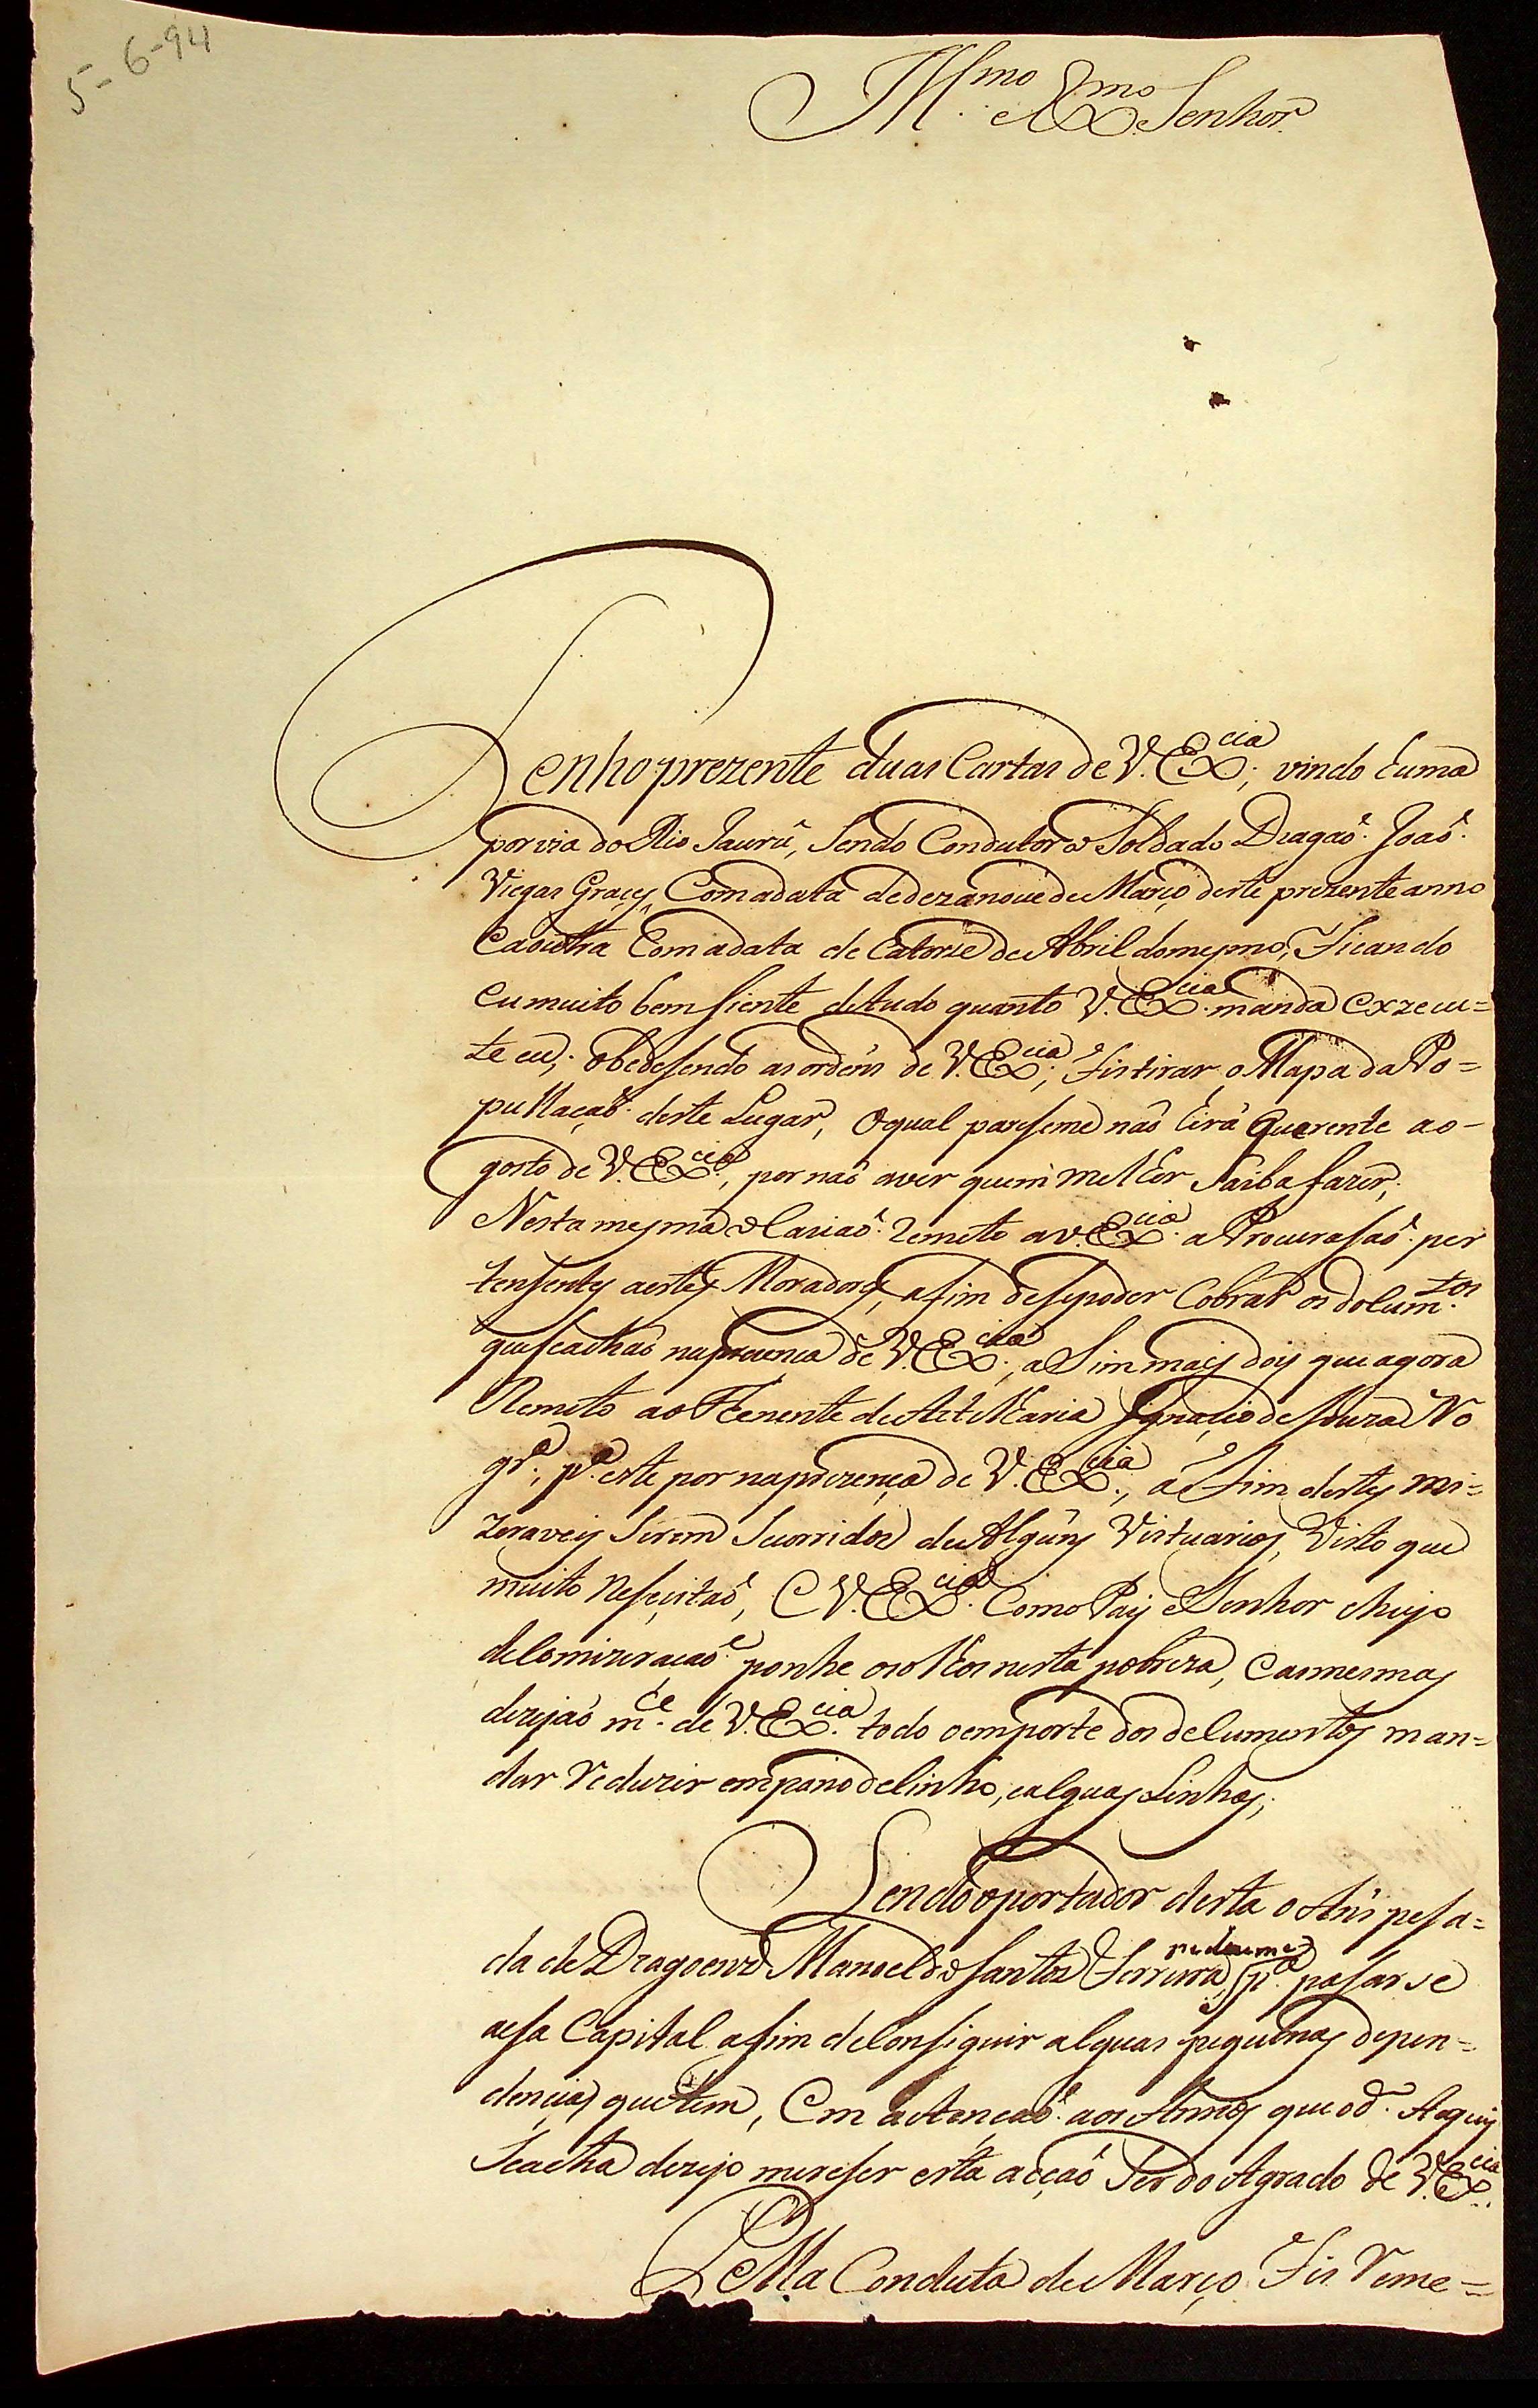 5-6-94
Ill.mo e Ex.mo Senhor
Tenho prezente duas Cartas de V. Ex.cia; vindo huma
por via do Rio Jaurû, Sendo Condutor o Soldado Dragaõ Joaõ
Viegas Com a data de dezanove de Março deste prezente anno
e a outra Com a data de Catorze de Abril do mesmo, Ficando
eu muito bem siente de tudo quanto V. Ex.cia manda exzecu=
te eu; obedesendo as ordens de V. Ex.cia; Fis tirar o Mapa da Po=
pullaçaõ deste Lugar, o qual parseme naõ hirá Querente ao
gosto de V. Ex.cia, por naõ aver quem milhor Saiba fazer;
Nesta mesma ocaziaõ Remeto a V. Ex.cia a Procurasaõ per
tensentes a estes Moradores, a fim de se poder Cobrar os dolum.tos
que se achaõ na prezença de V. Ex.cia, a Sim mais dois que agora
Remeto ao Tenente de Artilharia Ignaçio de Souza No
gr.a, p.a este por na prezença de V. Ex.cia, a Fim destes mi=
zeraveis Serem Sucorridos de Alguns Vistuarios, Visto que
muito Nesesitaõ, e V. Ex.cia Como Pay e Senhor chujo
de Comizeraçaõ ponhe os olhos nesta pobreza, e as mesmas
dezejaõ m.ce de V. Ex.cia todo o emporte dos delumentos man=
dar Reduzir em pano de linho, e alguas Linhas;
Sendo o portador desta o Ans pesa=
da de Dragoens Manoel dos Santos Ferreira, p.a pasar se
a esa Capital a fim de Consiguir alguas piquenas depen=
dencias que tem, Em a atençaõ aos Annos que o d.o Aquy
Se acha dezejo mereser esta acçaõ Ser do Agrado de V. Ex.cia
Pella Conduta de Março Fis Reme=